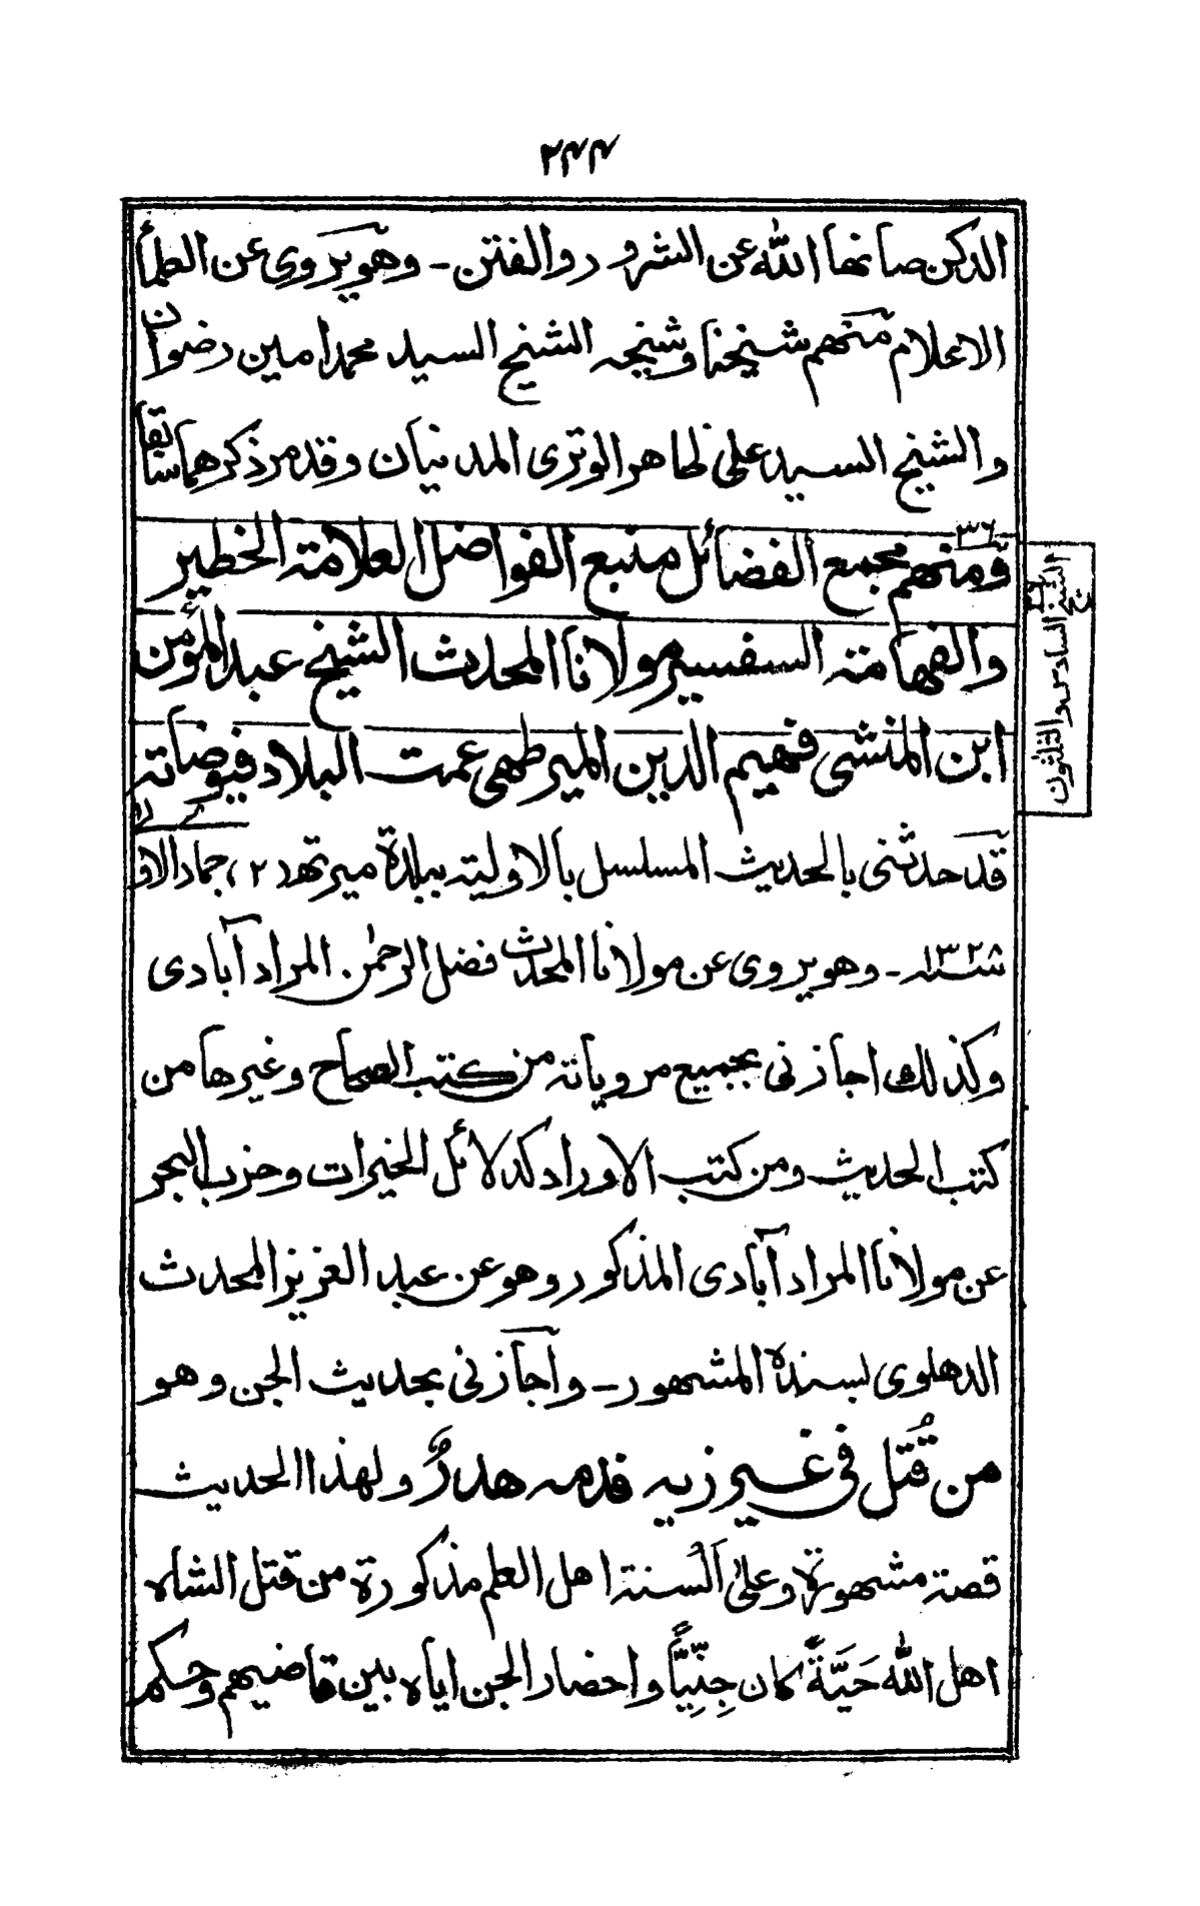 ٢٤٤
الدكن صانها الله عن الشرور والفتن ـ وهو يروى عن العلمأ
الاعلام منهم شيخنا وشيخه الشيخ السيد محمد امين رضوان
والشيخ السيد على ظاهر الوترى المدنيان وقد مر ذكرهما سابقا
٣٦
ومنهم مجمع الفضائل منبع الفواضل العلامة الخطير
والفهامة السفسير مولانا المحدث الشيخ عبد المؤمن
ابن المنشى فهيم الدين الميرطهى عمت البلاد فيوضاته
قد حدثنى بالحديث المسلسل بالاولية ببلدة ميرتهد (٢) جماد الاولى
سنه ١٣٢٨ ـ وهو يروى عن مولانا المحدث فضل الرحمٰن المراد آبادى
وكذلك اجازنى بجميع مروياته من كتب الصحاح وغيرها من
كتب الحديث ومن كتب الاوراد كدلائل الخيرات وحزب البحر
عن مولانا المراد آبادى المذكور وهو عن عبد العزيز المحدث
الدهلوى بسنده المشهور ـ وأجازنى بحديث الجن وهو
من قُتل فى غير زيه فدمه هدرٌ ولهذا الحديث
قصة مشهورة وعلى ألسنة اهل العلم مذكورة من قتل الشاه
اهل الله حَيَّةً كان جِنِّيّاً واحضار الجن اياه بين قاضيهم وحكم
الشيخ السادس والثلثون